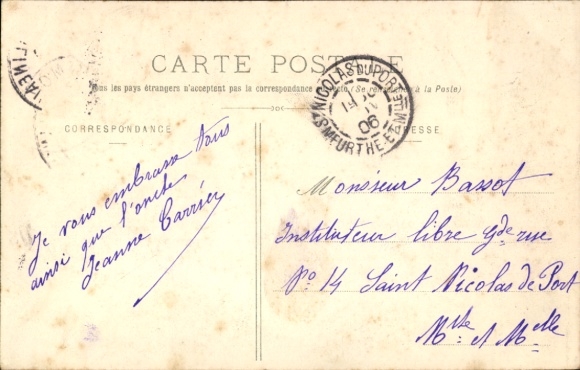 CARTE POSTALE
Tous les pays étrangers n'acceptent pas la correspondance au recto (Se renseigner à la Poste)
CORRESPONDANCE
ADRESSE
Sᵗ NICOLAS-DU-PORT
MEURTHE-ET-M
Je vous embrasse tous
ainsi que l'oncle
Jeanne Carrier
Monsieur Bassot
Instituteur libre Gde rue
No 14 Saint Nicolas de Port
Mthe et Mlle